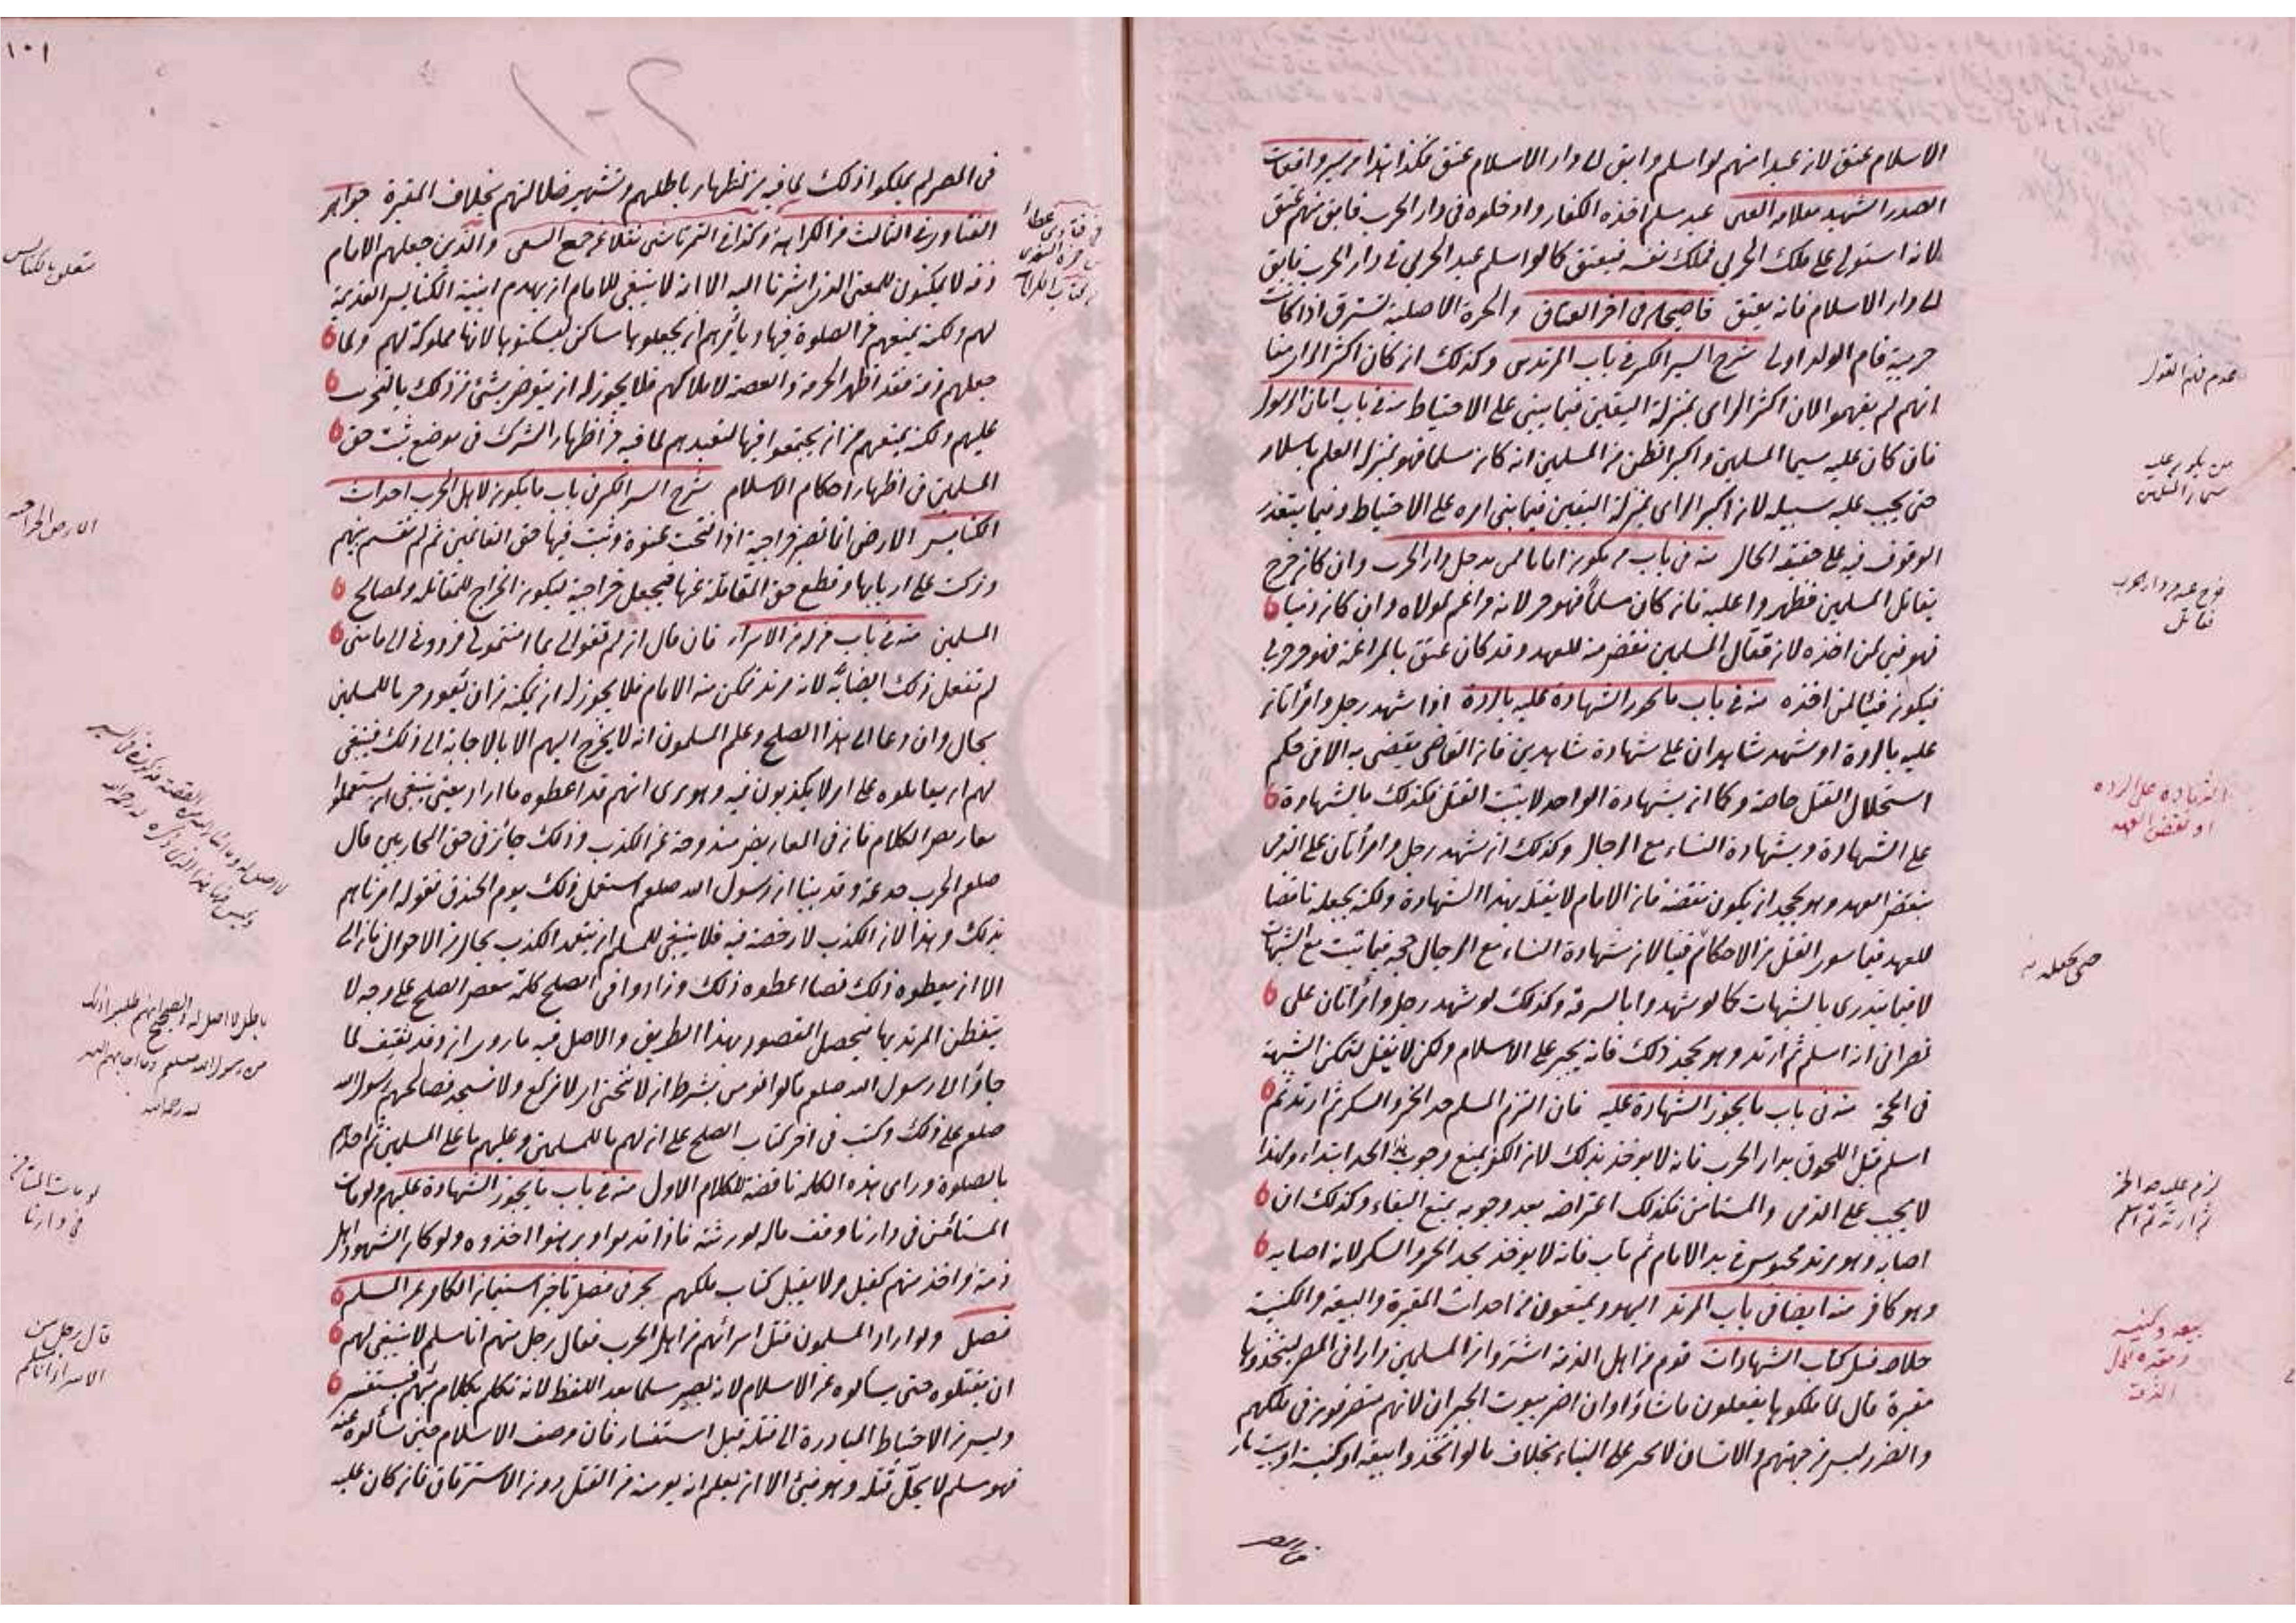 الاسلام عتق لان عبدا منهم لو اسلم وابق الى دار الاسلام عتق فكذا هذا من سير واقعات
الصدر الشهيد بعلامة العين عبد مسلم اخذه الكفار وادخلوه فى دار الحرب فابق منهم عتق
لانه استولى على ملك الحربى فملك نفسه فيعتق كما لو اسلم عبد الحربى فى دار الحرب فابق
الى دار الاسلام فانه يعتق قاضيخان فى اخر العتاق والحرة الاصلية تسترق اذا كانت
حربية فام الولد اولى شرح السير الكبير فى باب المرتدين وكذلك ان كان اكثر الراى منا
انهم لم يفهموا لان اكثر الراى بمنزلة اليقين فيما يبنى على الاحتياط منه فى باب امان الرسول
فان كان عليه سيما المسلمين واكبر الظن من المسلمين انه كان مسلما فهو بمنزلة العلم باسلامه
حتى يجب عليه سبيله لان اكبر الراى بمنزلة اليقين فيما بنى امره على الاحتياط وفيما يتعذر
الوقوف فيه على حقيقة الحال منه فى باب ما يكون امانا لمن يدخل دار الحرب وان كان خرج
يقاتل المسلمين فظهروا عليه فان كان مسلما فهو حر لانه راغم لمولاه وان كان ذميا
فهو فىء لمن اخذه لان قتال المسلمين نقض منه للعهد وقد كان عتق بالمراغمة فهو حر حربى
فيكون فيئا لمن اخذه منه فى باب ما يجوز الشهادة عليه بالردة اذا شهد رجل وامرأتان
عليه بالردة او شهد شاهدان على شهادة شاهدين فان القاضى يقضى به الا فى حكم
استحلال القتل خاصة وكما ان بشهادة الواحد لا يثبت القتل فكذلك بالشهادة
على الشهادة وبشهادة النساء مع الرجال وكذلك ان شهد رجل وامرأتان على الذمى
بنقض العهد وهو يجحد ان يكون نقضه فان الامام لا يقتله بهذا الشهادة ولكنه يجعله ناقضا
للعهد فيما سوى القتل من الاحكام فيئا لان شهادة النساء مع الرجال حجة فيما يثبت مع الشبهات
لا فيما يندرى بالشبهات كما لو شهدوا بالسرقة وكذلك لو شهد رجل وامرأتان على
نصرانى انه اسلم ثم ارتد وهو يجحد ذلك فانه يجبر على الاسلام ولكن لا يقتل لتمكن الشبهة
فى الحجة منه فى باب ما يجوز الشهادة عليه فان التزم المسلم حد الخمر والسكر ثم ارتد ثم
اسلم قبل اللحوق بدار الحرب فانه لا يوخذ بذلك لان الكفر يمنع وجوب هذا الحد ابتداء ولهذا
لا يجب على الذمى والمستامن فكذلك اعتراضه بعد وجوبه يمنع البقاء وكذلك ان
اصابه وهو مرتد محبوس فى يد الامام ثم تاب فانه لا يوخذ بحد الخمر والسكر لانه اصابه
وهو كافر منه ايضا فى باب المرتد اليهود يمنعون من احداث المقبرة والبيعة والكنيسة
خلاصه قبيل كتاب الشهادات قوم من اهل الذمة اشتروا من المسلمين دارا فى المصر ليتخذوها
مقبرة قال لما ملكوها يفعلون ما شاؤا وان اضر ببيوت الجيران لانهم متصرفون فى ملكهم
والضرر ليس من جهتهم والانسان لا يجبر على البناء بخلاف ما لو اتخذوا بيعة او كنيسة او بيت نار
فى المصر
عدم فهم القول
من يكون عليه
سيما المسلمين
خرج عبد من دار الحرب
يقاتل
الشهادة على الردة
او نقض العهد
لزم عليه حد الخمر
ثم ارتد ثم اسلم
بيعه وكنيسه
ومقبره اهل
الذمة
١٠١
فى المصر لم يملكوا ذلك لما فيه من اظهار باطلهم وتشهير ضلالتهم بخلاف المقبرة جواهر
الفتاوى فى الثالث من الكراهية وكذا فى التمرتاشى نقلا عن جمع السعى والذين جعلهم الامام
ذمة لا يمكنون للمعنى الذى اشرنا اليه الا انه لا ينبغى للامام ان يهدم ابنية الكنايس القديمة
لهم ولكنه يمنعهم من الصلوة فيها ويأمرهم ان يجعلوها مساكن ليسكنوها لانها مملوكة لهم ولما
جعلهم ذمة فقد اظهر الحرمة والعصمة لاملاكهم فلا يجوز له ان يتعرض بشىء من ذلك بالتخريب
عليهم ولكنه يمنعهم من ان يجتمعوا فيها لتعبدهم لما فيه من اظهار الشرك فى موضع ثبت حق
المسلمين فى اظهار احكام الاسلام شرح السير الكبير فى باب ما يكون لاهل الحرب احداث
الكنايس الارض انما تصير خراجية اذا فتحت عنوة وثبت فيها حق الغانمين ثم لم تقسم بينهم
وتركت على اربابها وقطع حق المقاتلة عنها فيجعل خراجية ليكون الخراج للمقاتلة ولمصالح
المسلمين منه فى باب من له من الاسراء فان قال ان لم تقولى بما امنتمونى فردونى الى مامنى
لم تفعل ذلك ايضا به لانه مرتد تمكن منه الامام فلا يجوز له ان يمكنه من ان يعود حربا للمسلمين
بحال وان دعا الى هذا الصلح وعلم المسلمون انه لا يخرج اليهم الا بالاجابة الى ذلك فينبغى
لهم ان يعاملوه على امر لا يكذبون فيه وهو يرى انهم قد اعطوه ما اراد يعنى ينبغى ان يستعملوا
معاريض الكلام فان فى المعاريض مندوحة عن الكذب وذلك جائز فى حق المحاربين قال
صلعم الحرب خدعة وقد بينا ان رسول الله صلعم استعمل ذلك يوم الخندق بقوله امرناهم
بذلك وهذا لان الكذب لا رخصة فيه فلا ينبغى للمسلم ان يتعمد الكذب بحال من الاحوال فان ابى
الا ان يعطوه ذلك نصا اعطوه ذلك وزادوا فى الصلح كلمة تنقض الصلح على وجه لا
يتفطن المرتد بها فيحصل المقصود بهذا الطريق والاصل فيه ما روى ان وفد ثقيف لما
جاؤا الى رسول الله صلعم قالوا نومن بشرط ان لا ننحنى اى لا نركع ولا نسجد فصالحهم رسول الله
صلعم على ذلك وكتب فى اخر كتاب الصلح على ان لهم ما للمسلمين وعليهم ما على المسلمين ثم امرهم
بالصلوة وراى هذه الكلمة ناقضة للكلام الاول منه فى باب ما يجوز الشهادة عليهم ولو مات
المستأمن فى دارنا وقف ماله لورثته فاذا قدموا وبرهنوا اخذوه ولو كان الشهود اهل
ذمة واخذ منهم كفيل ولا يقبل كتاب ملكهم بحر فى فصل تاخر استيمان الكافر عن المسلم
فصل ولو اراد المسلمون قتل اسرائهم من اهل الحرب فقال رجل منهم انا مسلم لا ينبغى لهم
ان يقتلوه حتى يسألوه عن الاسلام لانه يصير مسلما بهذا اللفظ لانه تكلم بكلام مبهم فيستفسر
وليس من الاحتياط المبادرة الى قتله قبل استفسار فان وصف الاسلام حين سألوه عنه
فهو مسلم لا يحل قتله وهو فىء الا ان يعلم انه يومنه من القتل دون الاسترقاق فان كان عليه
متعلق بالكنايس
الارض الخراجيه
باطل لا اصل له والصحيح انهم طلبوا ذلك
من رسول الله صلعم وما اجابهم اليه
لو مات المستامن
فى دارنا
قال رجل من
الاسراء انا مسلم